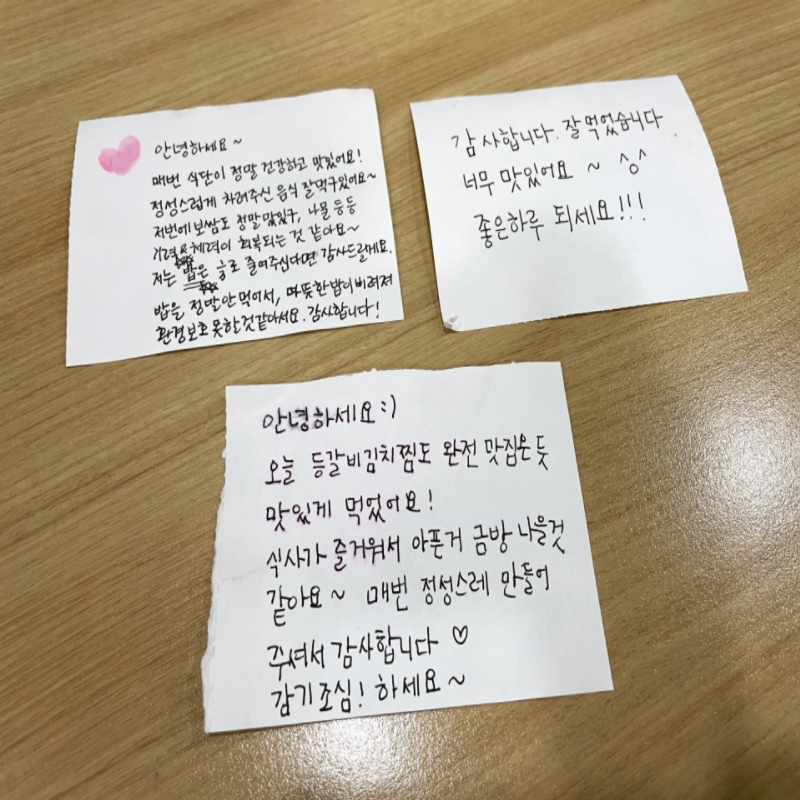 안녕하세요~
매번 식단이 정말 건강하고 맛있어요!
정성스럽게 차려주신 음식 잘먹구있어요~
저번에 보쌈도 정말 맛있구, 나물 등등
기력&체력이 회복되는 것 같아요~
저는 밥은 글로 줄여주신다면 감사드릴게요.
밥을 정말 안 먹어서, 따뜻한 밥이 버려져
환경보호 못한것같아서요. 감사합니다!
감사합니다. 잘 먹었습니다
너무 맛있어요 ~ ^o^
좋은하루 되세요!!!
안녕하세요:)
오늘 등갈비김치찜도 완전 맛집인 듯
맛있게 먹었어요!
식사가 즐거워서 아픈거 금방 나을것
같아요~ 매번 정성스레 만들어
주셔서 감사합니다 ♡
감기조심! 하세요~